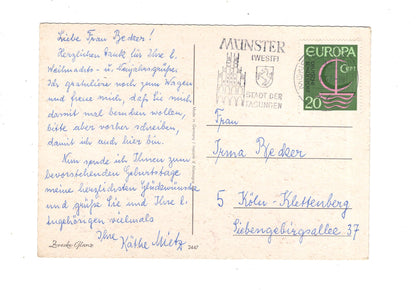 Liebe Frau Becker!
Herzlichen Dank für Ihre l.
Weihnachts- u. Neujahrsgrüße.
Ich gratuliere noch zum Wagen
und freue mich, daß Sie mich
damit mal besuchen wollen,
bitte aber vorher schreiben,
damit ich auch hier bin.
Nun sende ich Ihnen zum
bevorstehenden Geburtstage
meine herzlichsten Glückwünsche
und grüße Sie und Ihre l.
Angehörigen vielmals
Ihre
Käthe Mietz
Brocke Glanz
2447
MÜNSTER
(WESTF)
STADT DER
TAGUNGEN
EUROPA
CEPT
20
Frau
Irma Becker
5 Köln-Klettenberg
Siebengebirgsallee 37